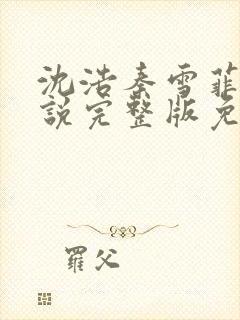 沈浩秦雪菲
説完整版免
羅父